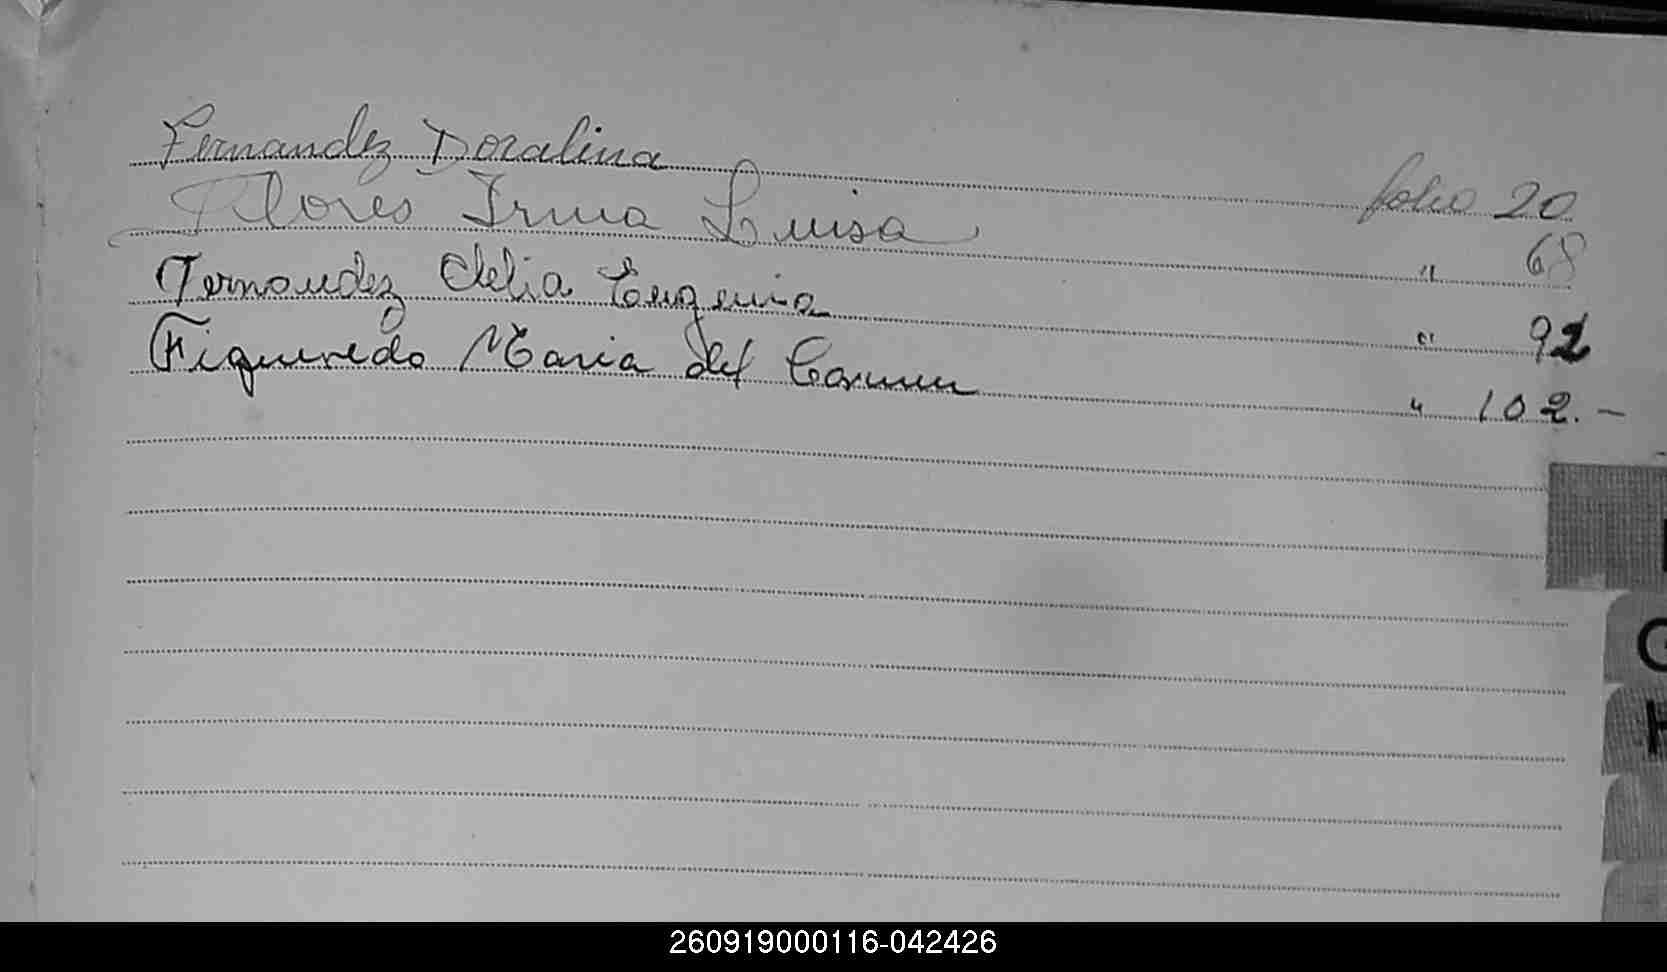 Fernandez Doralina folio 20
Flores Irma Luisa " 68
Fernandez Clelia Eugenia " 92
Figueredo Maria del Carmen " 102.-
G
H
260919000116-042426